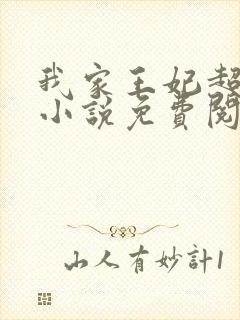 我家王妃超
小說免費閱
山人有妙計1